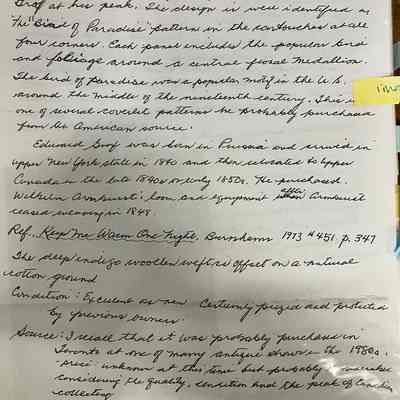 Graf at his peak. The design is were identified as
the "Bird of Paradise" pattern in the cartouches at all
four corners. Each panel includes the popular bird
and foliage around a central floral medallion.
The bird of paradise was a popular motif in the U.S.
around the middle of the nineteenth century. This is
one of several coverlet patterns he probably purchased
from an American source.
Edward Graf was born in Prussia and arrived in
upper New York state in 1840 and then relocated to Upper
Canada in the late 1840s or early 1850s. He purchased
Wilhelm Armbrust's loom and equipment after Armbrust
ceased weaving in 1848.
Ref. Keep Me Warm One Night, Burnhams 1973 #451 p. 347
The deep indigo woollen weft is offset on a natural
cotton ground
Condition: Excellent as new Certainly prized and protected
by previous owner.
Source: I recall that it was probably purchased in
Toronto at one of many antique shows in the 1980s.
Price: unknown at this time but probably
considering the quality, condition and the peak of
collecting